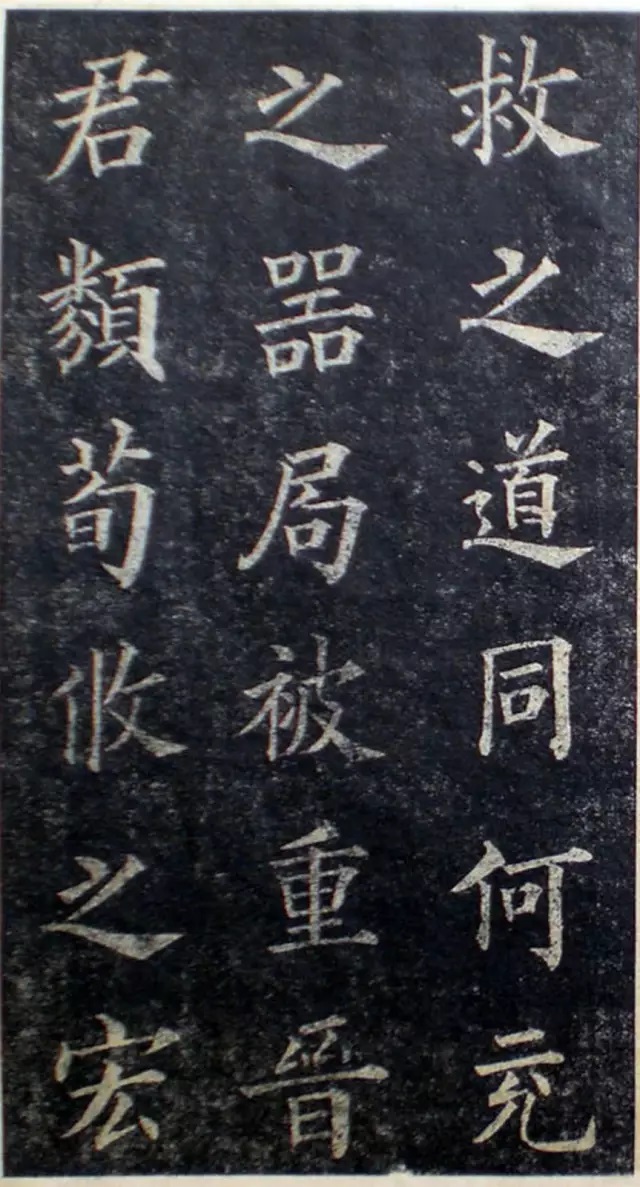 救之道同何充
之器局被重晉
君類荀攸之宏